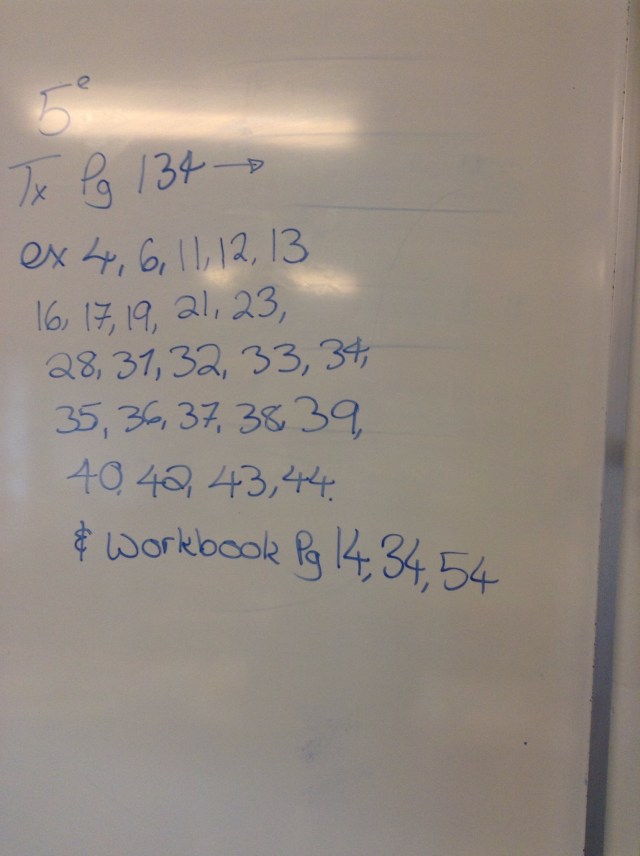 5e
Tx Pg 134 →
ex 4, 6, 11, 12, 13
16, 17, 19, 21, 23,
28, 31, 32, 33, 34,
35, 36, 37, 38 39,
40, 42, 43, 44.
& workbook Pg 14, 34, 54